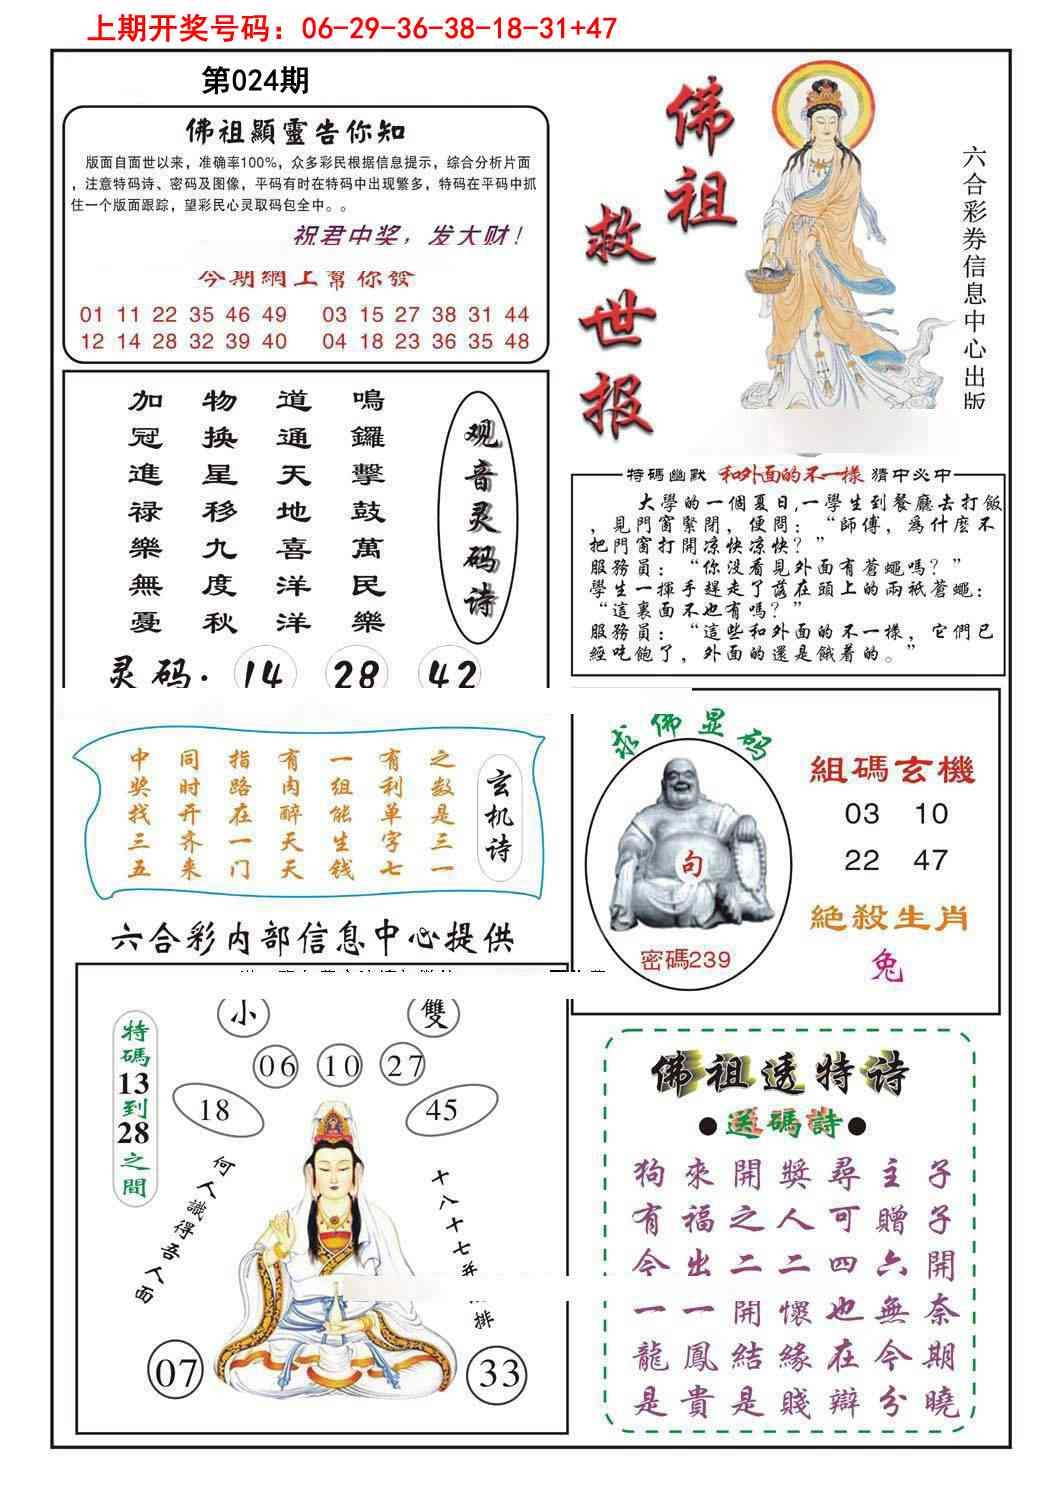 上期开奖号码：06-29-36-38-18-31+47
第024期
佛祖顯靈告你知
版面自面世以来，准确率100%，众多彩民根据信息提示，综合分析片面
，注意特码诗、密码及图像，平码有时在特码中出现繁多，特码在平码中抓
住一个版面跟踪，望彩民心灵取码包全中。。
祝君中奖，发大财！
今期網上幫你發
01 11 22 35 46 49 03 15 27 38 31 44
12 14 28 32 39 40 04 18 23 36 35 48
佛祖
救世报
六合彩券信息中心出版
加冠進禄樂無憂
物换星移九度秋
道通天地喜洋洋
鳴鑼擊鼓萬民樂
观音灵码诗
灵码. 14 28 42
特碼幽默 和外面的不一樣 猜中必中
大學的一個夏日,一學生到餐廳去打飯
，見門窗緊閉，便問：“師傅，為什麼不
把門窗打開凉快凉快？”
服務員：“你没看見外面有蒼蠅嗎？”
學生一揮手趕走了落在頭上的兩祇蒼蠅：
“這裏面不也有嗎？”
服務員：“這些和外面的不一樣，它們已
經吃飽了，外面的還是餓着的。”
中奖找三五
同时开齐来
指路在一门
有肉醉天天
一组能生钱
有利单字七
之数是三一
玄机诗
求佛显码
句
密碼239
組碼玄機
03 10
22 47
絕殺生肖
兔
六合彩内部信息中心提供
小 雙
06 10 27
18 45
特碼13到28之間
何人識得吾人面
十八十七
排
07 33
佛祖透特诗
●送碼詩●
狗來開獎尋主子
有福之人可贈子
今出二二四六開
一一開懷也無奈
龍鳳結緣在今期
是貴是賤辯分曉